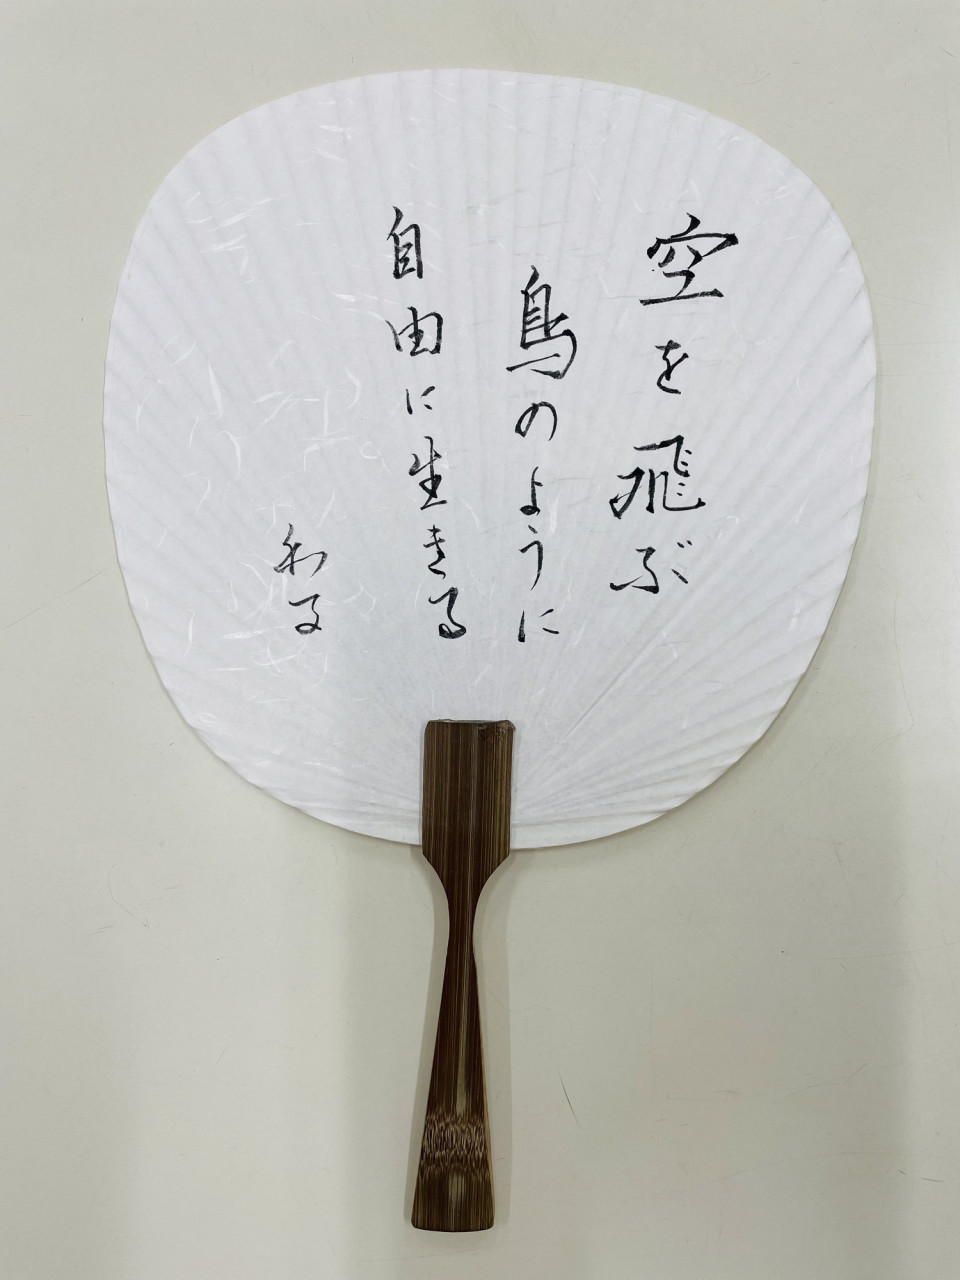 空を飛ぶ
鳥のように
自由に生きる